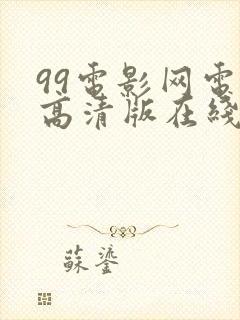 99電影网電
高清版在綫
蘇鎏